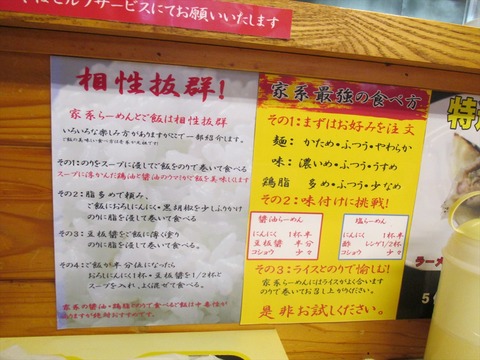 セルフサービスにてお願いいたします
相性抜群!
家系らーめんとご飯は相性抜群
いろいろな楽しみ方がありますがここで一部紹介します。
その1:のりをスープに浸してご飯をのりで巻いて食べる
スープに浮かんだ鶏油と醤油のウマミがご飯を美味しくします
その2:脂多めで頼み、
ご飯におろしにんにく・黒胡椒を少しふりかけ
のりに脂を浸して巻いて食べる
その3:豆板醤をご飯に薄く塗り
のりに脂を浸して巻いて食べる。
その4:ご飯が半分位になったら
おろしにんにく1杯・豆板醤を1/2杯と
スープを入れ、よく混ぜて食べる。
家系の醤油・鶏脂ののりで食べるご飯は中毒性が
ありますが絶対おすすめです。
家系最強の食べ方
その1:まずはお好みを注文
麺: かため・ふつう・やわらか
味: 濃いめ・ふつう・うすめ
鶏脂 多め・ふつう・少なめ
その2:味付けに挑戦!
醤油らーめん
にんにく 1杯半
豆板醤 半分
コショウ 少々
塩らーめん
にんにく 1杯
酢 レンゲ1/2杯
コショウ 少々
その3:ライスとのりで愉しむ!
家系らーめんにはライスがよく合います
のりで巻いてお召し上がりください。
是非お試しください。
特
ラーメ
5